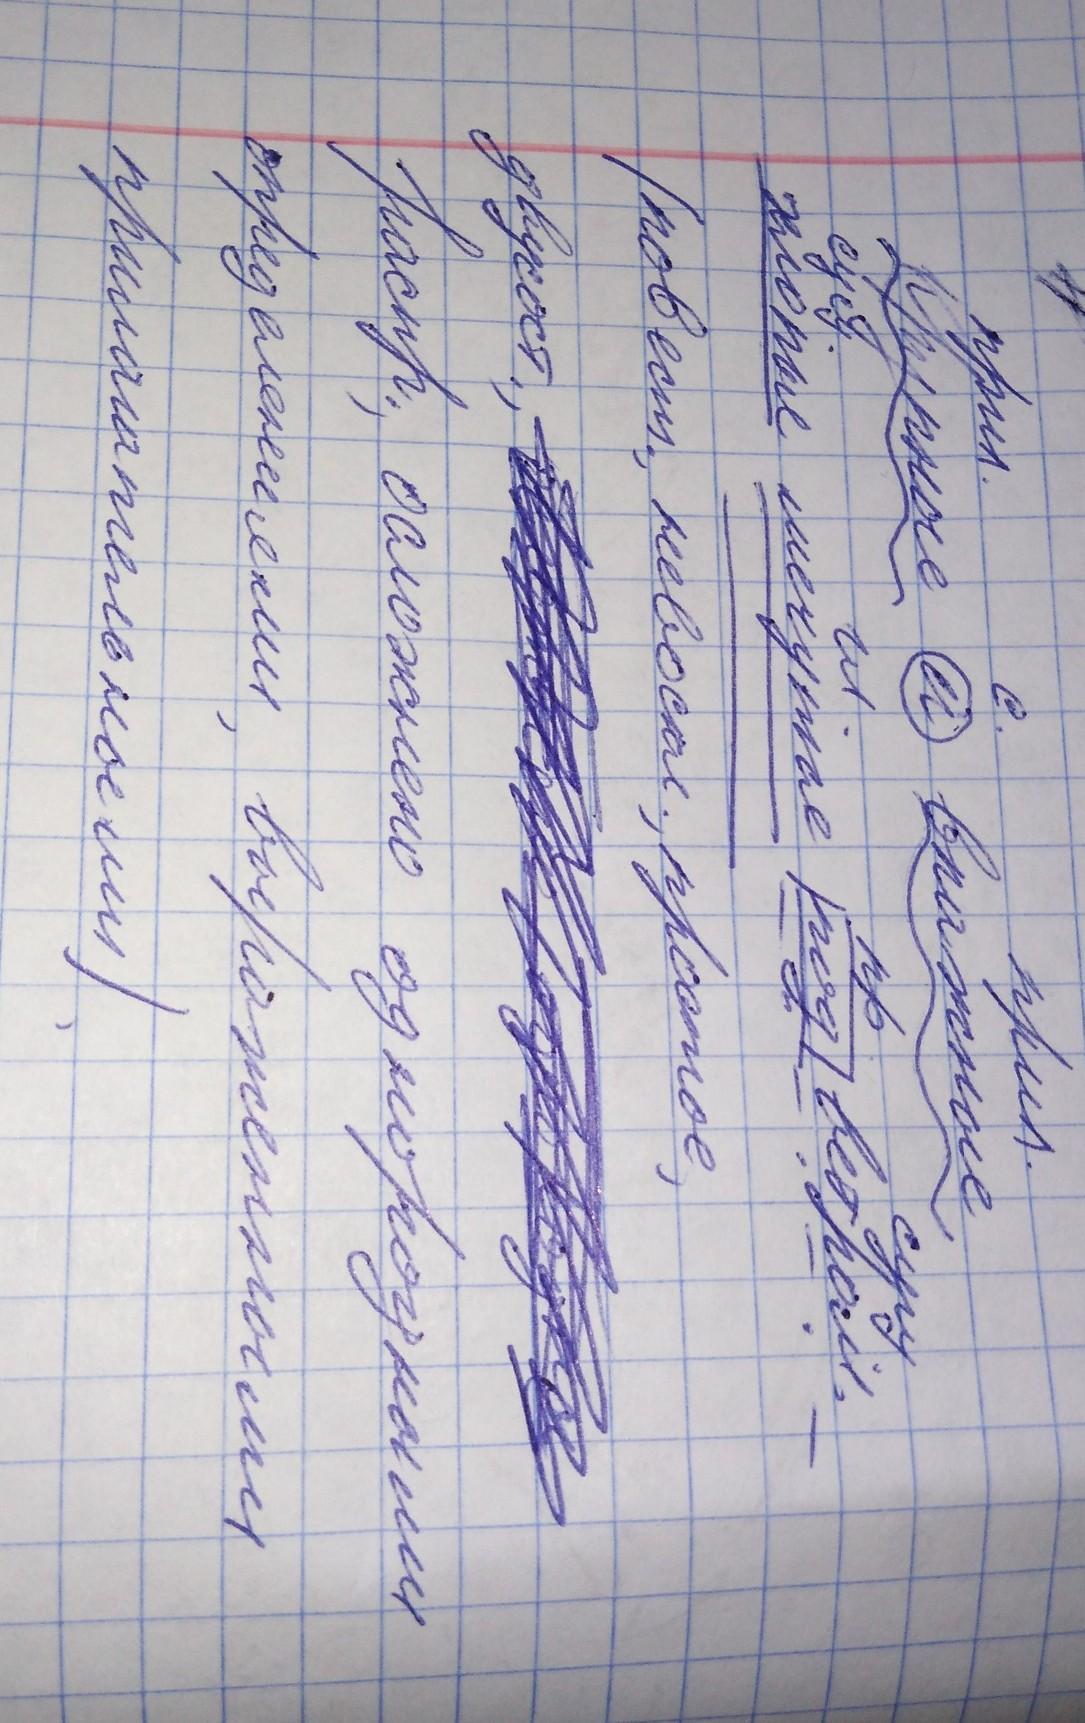 прил. с. прил.
Крупные и влажные
сущ гл пр сущ
хлопья мечутся под ветром.
(повест, невоскл., простое,
двусост,
распр., осложнено однородными
определениями, выраженными
прилагательными)